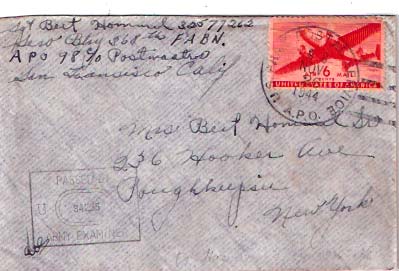 Sgt Bert Hommel 32077262
Serv Btry 368th F.A.BN.
APO 98 c/o Postmaster
San Francisco Calif
U.S. ARMY
A.P.O.
1944
6 CENTS
AIR MAIL
UNITED STATES OF AMERICA
Mrs Bert Hommel Sr
236 Hooker Ave
Poughkeepsie
New York
PASSED BY
ARMY EXAMINER